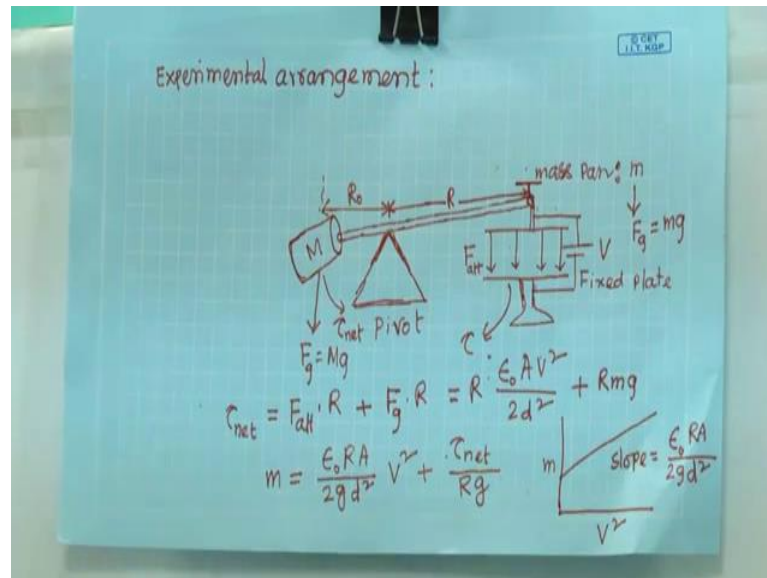 © CET
I.I.T. KGP
Experimental arrangement:
mass Pan: m
R₀
R
M
F_g = mg
F_att
V
Fixed plate
τ_net
Pivot
τ
F_g = Mg
τ_net = F_att · R + F_g · R = R · ϵ₀AV² / 2d² + Rmg
m = ϵ₀RA / 2gd² V² + τ_net / Rg
m
slope = ϵ₀RA / 2gd²
V²